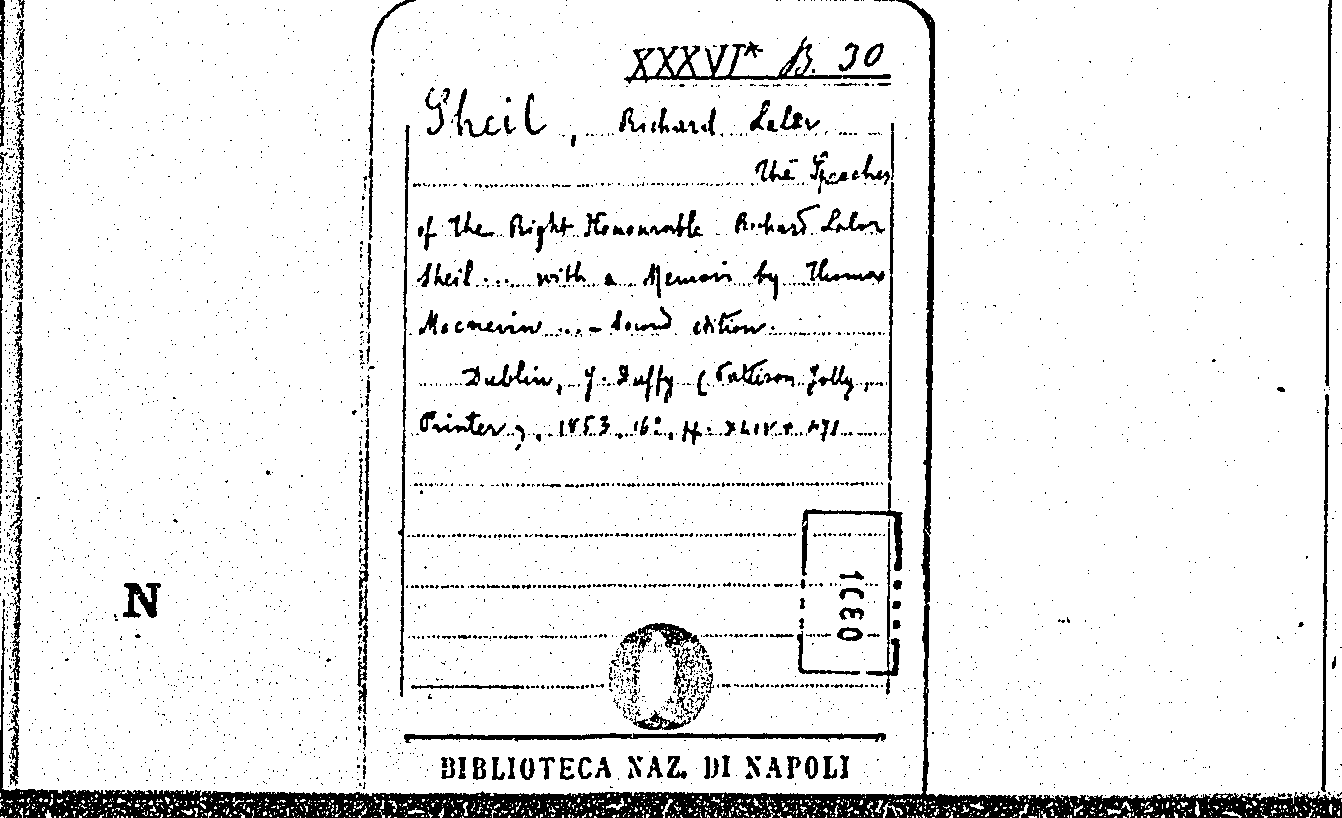 XXXVI* B. 30
Sheil, Richard Lalor
The Speeches
of the Right Honourable Richard Lalor
Sheil ... with a Memoir by Thomas
Macnevin ... - Second edition.
Dublin, J. Duffy (Pattison Jolly,
Printer), 1853, 16°, pp. XLIV +
N
BIBLIOTECA NAZ. DI NAPOLI